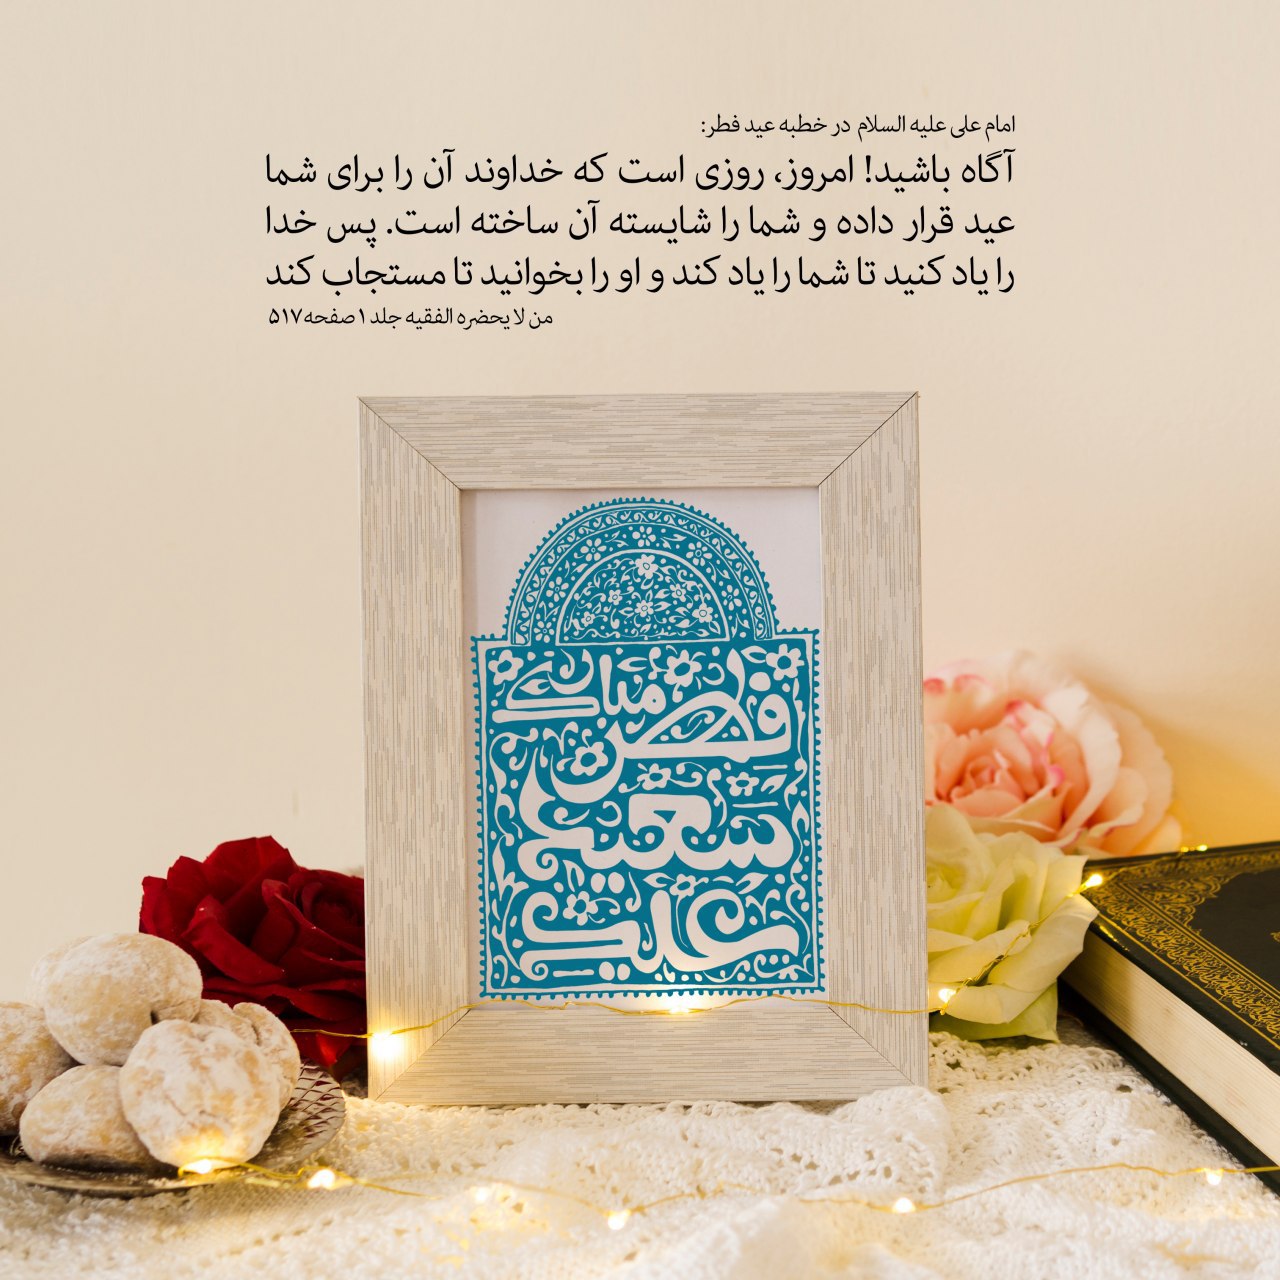 امام علی علیه السلام در خطبه عید فطر:
آگاه باشید! امروز، روزی است که خداوند آن را برای شما
عید قرار داده و شما را شایسته آن ساخته است. پس خدا
را یاد کنید تا شما را یاد کند و او را بخوانید تا مستجاب کند
من لا یحضره الفقیه جلد ۱ صفحه ۵۱۷
فطر مبارک
سعید
علیک